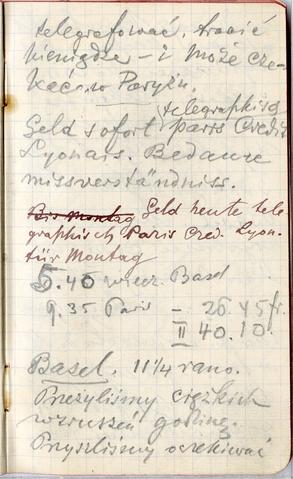 telegrafować, tracić
pieniądze – i może cze-
kać w Paryżu.
telegraphisch
Geld sofort Paris Credit
Lyonais. Bedaure
missverständniss.
Bis Montag Geld heute tele-
graphisch Paris Cred. Lyon.
für Montag
5.40 wiecz. Basel
9.35 Paris – 26.45 fr.
II 40.10.
Basel. 11 1/4 rano.
Przeżyliśmy ciężkich
wzruszeń godzinę.
Przyszliśmy oczekiwać